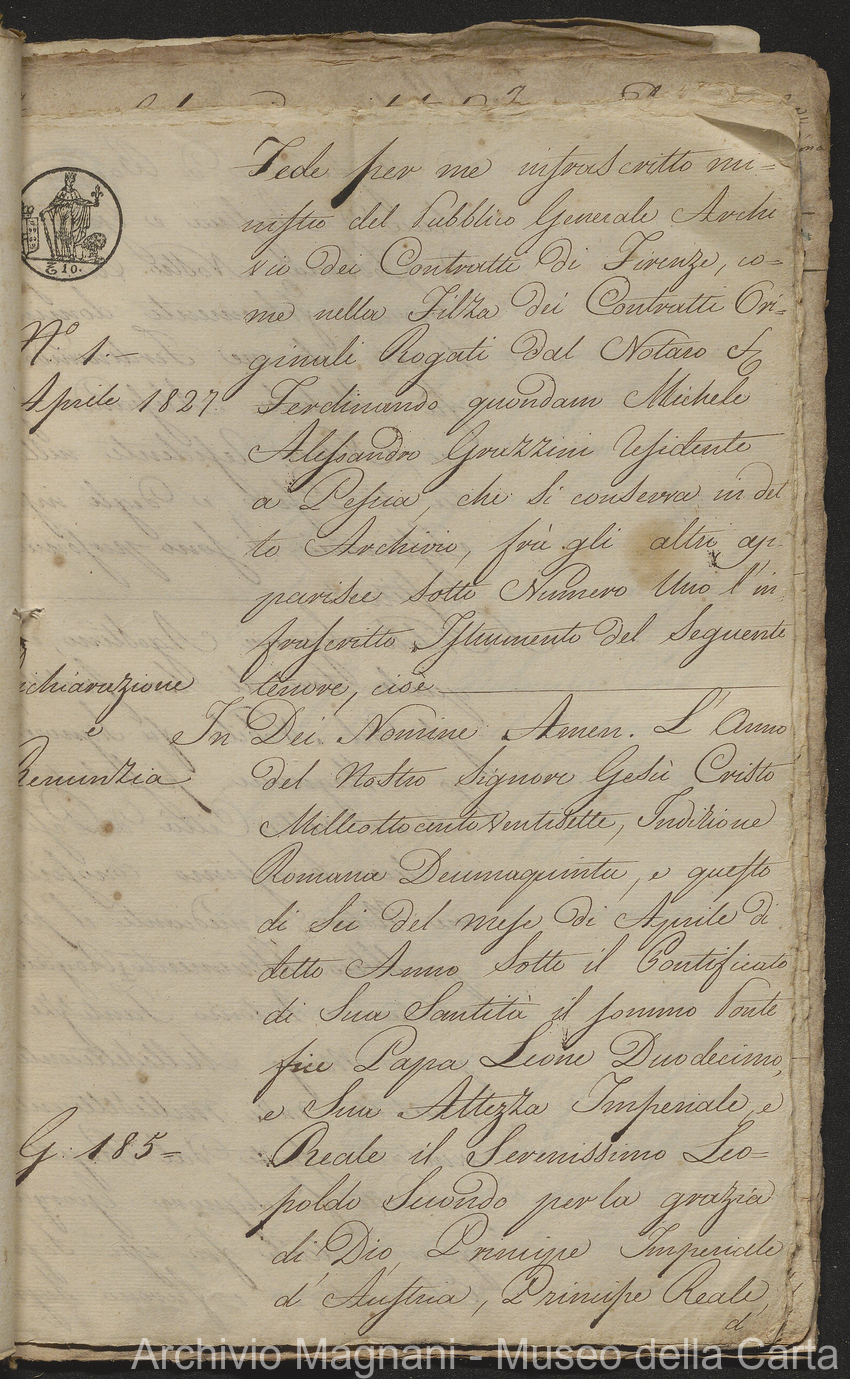 Fede per me infrascritto mi=
nistro del Pubblico Generale Archi
vio dei Contratti di Firenze, co=
me nella Filza dei Contratti Ori=
ginali Rogati dal Notaro
Ferdinando quondam Michele
Alessandro Grazzini residente
a Pescia, che si conserva in det
to Archivio, frà gli altri ap=
parisce sotto Numero Uno l'in
frascritto Istrumento del seguente
tenore, cioè
In Dei Nomine Amen. L'Anno
del Nostro Signore Gesù Cristo
Milleottocentoventisette, Indizione
Romana Decimaquinta, e questo
di Sei del mese di Aprile di
detto Anno sotto il Pontificato
di Sua Santità il sommo Ponte
fice Papa Leone Duodecimo,
e Sua Altezza Imperiale, e
Reale il Serenissimo Leo=
poldo Secondo per la grazia
di Dio Principe Imperiale
d'Austria, Principe Reale
d'
10.
Nº 1.
Aprile 1827
ichiarazione
e
Renunzia
G. 185=
Archivio Magnani - Museo della Carta